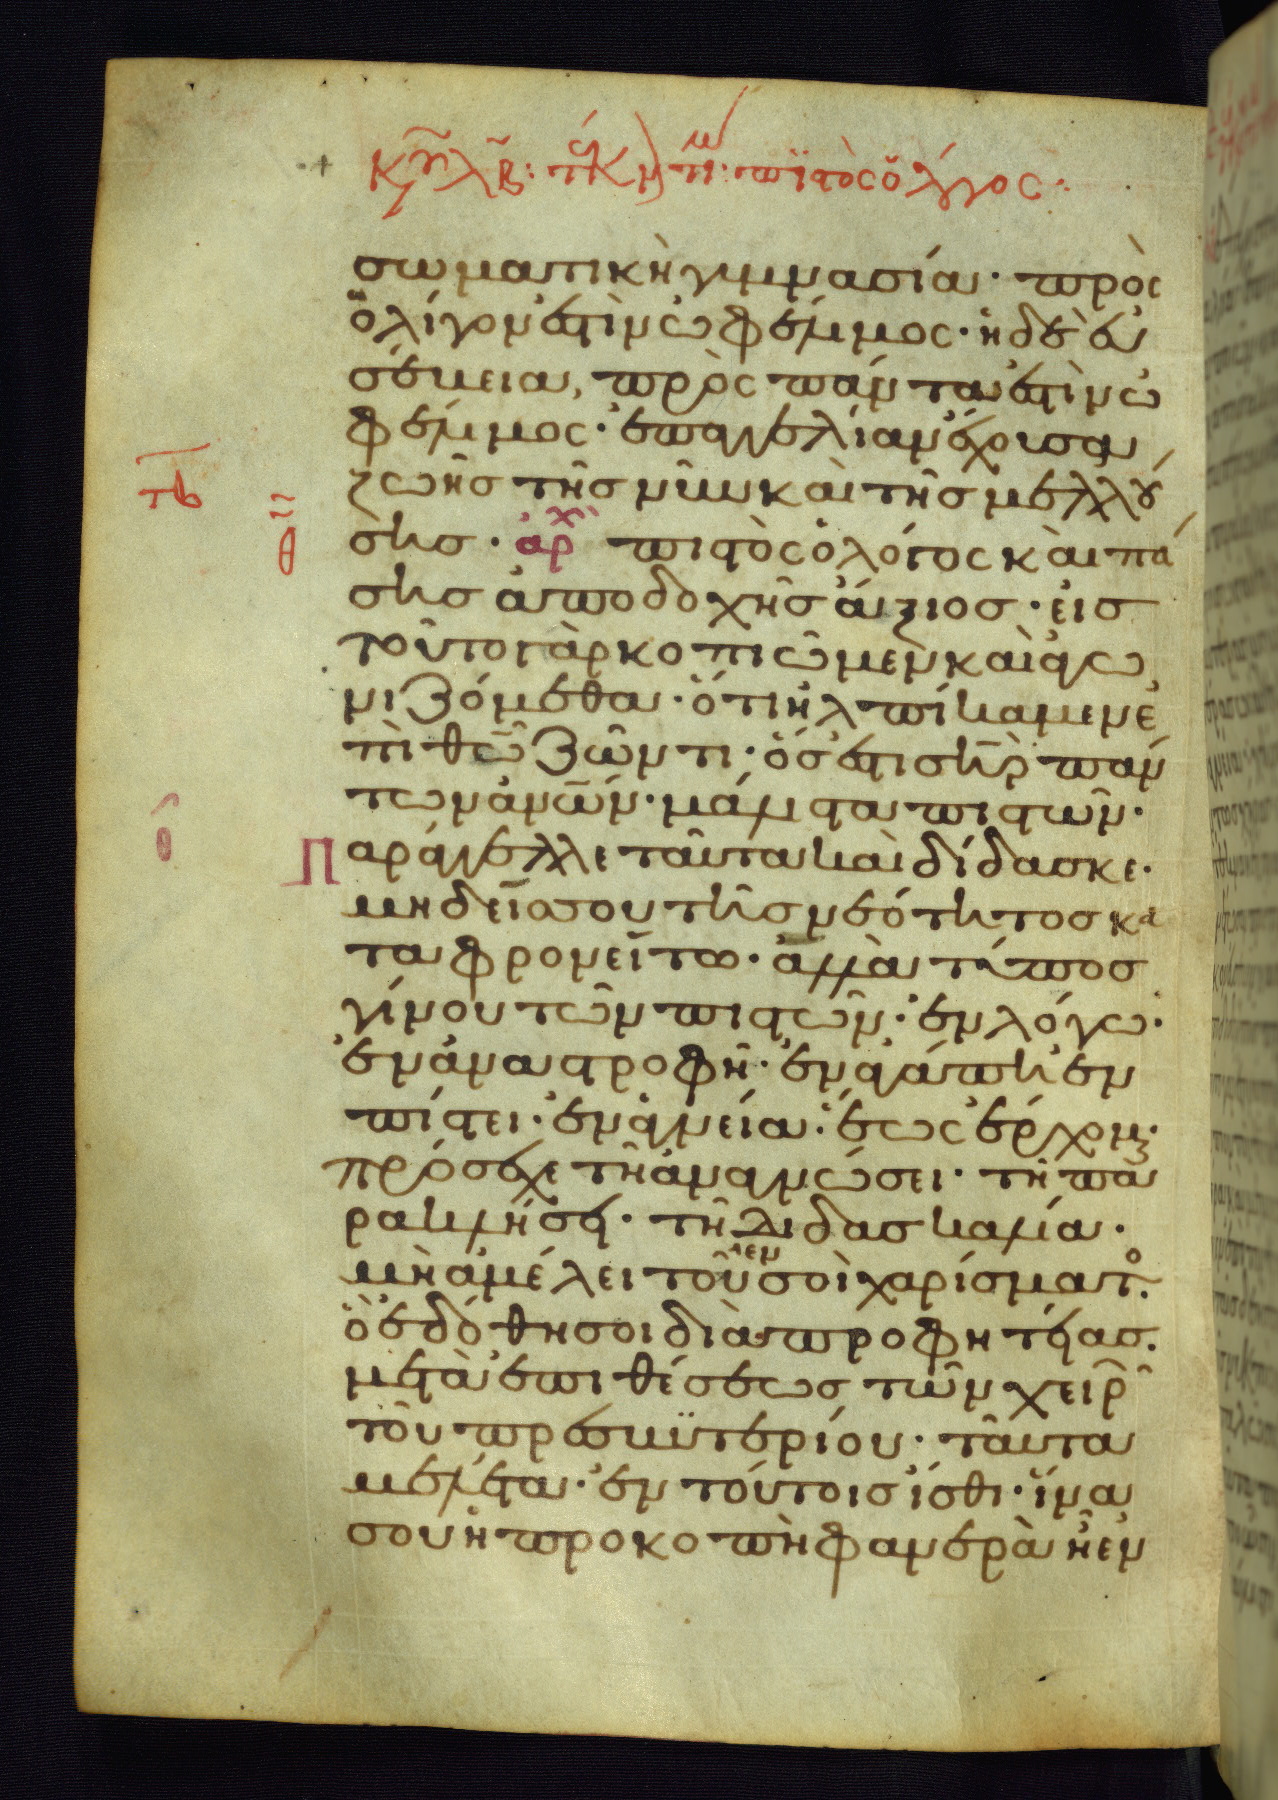 Κυ λβ: τέκν τι: πιστὸς ὁ λόγος:
σωματικὴ γυμνασία· πρὸς
ὀλίγον ἐστὶν ὠφέλιμος· ἡ δὲ εὐ
σέβεια, πρὸς πάντα ἐστὶν ὠ
φέλιμος· ἐπαγγελίαν ἔχουσα
ζωῆς τῆς νῦν καὶ τῆς μελλού
σης· ἀρχ πιστὸς ὁ λόγος καὶ πά
σης ἀποδοχῆς ἄξιος· εἰς
τοῦτο γὰρ κοπιῶμεν καὶ ἀγω
νιζόμεθα· ὅτι ἠλπίκαμεν ἐ
πὶ θῶ ζῶντι· ὅς ἐστι σηρ πάν
των ἀνῶν· μάλιστα πιστῶν·
Παράγγελλε ταῦτα καὶ δίδασκε·
μηδείς σου τῆς νεότητος κα
ταφρονείτω· ἀλλὰ τύπος
γίνου τῶν πιστῶν· ἐν λόγω·
ἐν ἀναστροφῆ· ἐν ἀγάπη ἐν
πίστει· ἐν ἁγνεία· ἕως ἔρχομαι·
πρόσεχε τῆ ἀναγνώσει· τῆ πα
ρακλήσει· τῆ διδασκαλία·
μὴ ἀμέλει τοῦ ἐν σοὶ χαρίσματο·
ὃ ἐδόθη σοι διὰ προφητείας·
μετὰ ἐπιθέσεως τῶν χειρ
τοῦ πρεσβϋτερίου· ταῦτα
μελέτα· ἐν τούτοις ἴσθι· ἵνα
σου ἡ προκοπὴ φανερὰ ἦ ἐν